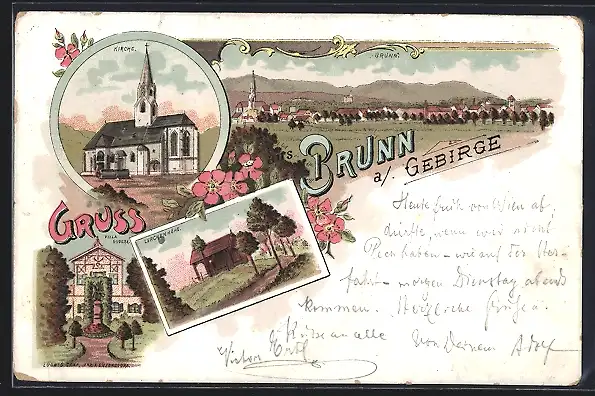 KIRCHE.
BRUNN.
GRUSS
AUS
BRUNN
a/. GEBIRGE
VILLA
LERCHENHÖHE.
Heute früh von Wien ab,
dürfte wenn wir nicht
Pech haben – wie auf der Her-
fahrt – morgen Dienstag abends
kommen. Herzliche Grüsse
Küsse an alle
Von Deinem Adolf
Victor